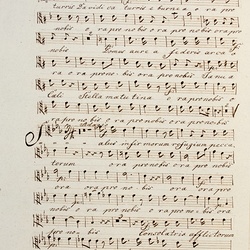 turris Davidica turris eburnea ora pro
nobis ora pro nobis ora pro nobis ora pro
nobis Domus aurea foderis arca o
ra o ra pro no bis ora pro nobis Janua
Cæli Stella matutina ora pro nobis
ora pro no bis ora pro no bis
Salus infirmorum refugium pecca
torum ora pro nobis ora pro
ora ora pro no bis ora ora pro
nobis o ra pro nobis o ra pro no bis ora
pro no bis Consolatrix afflictorum